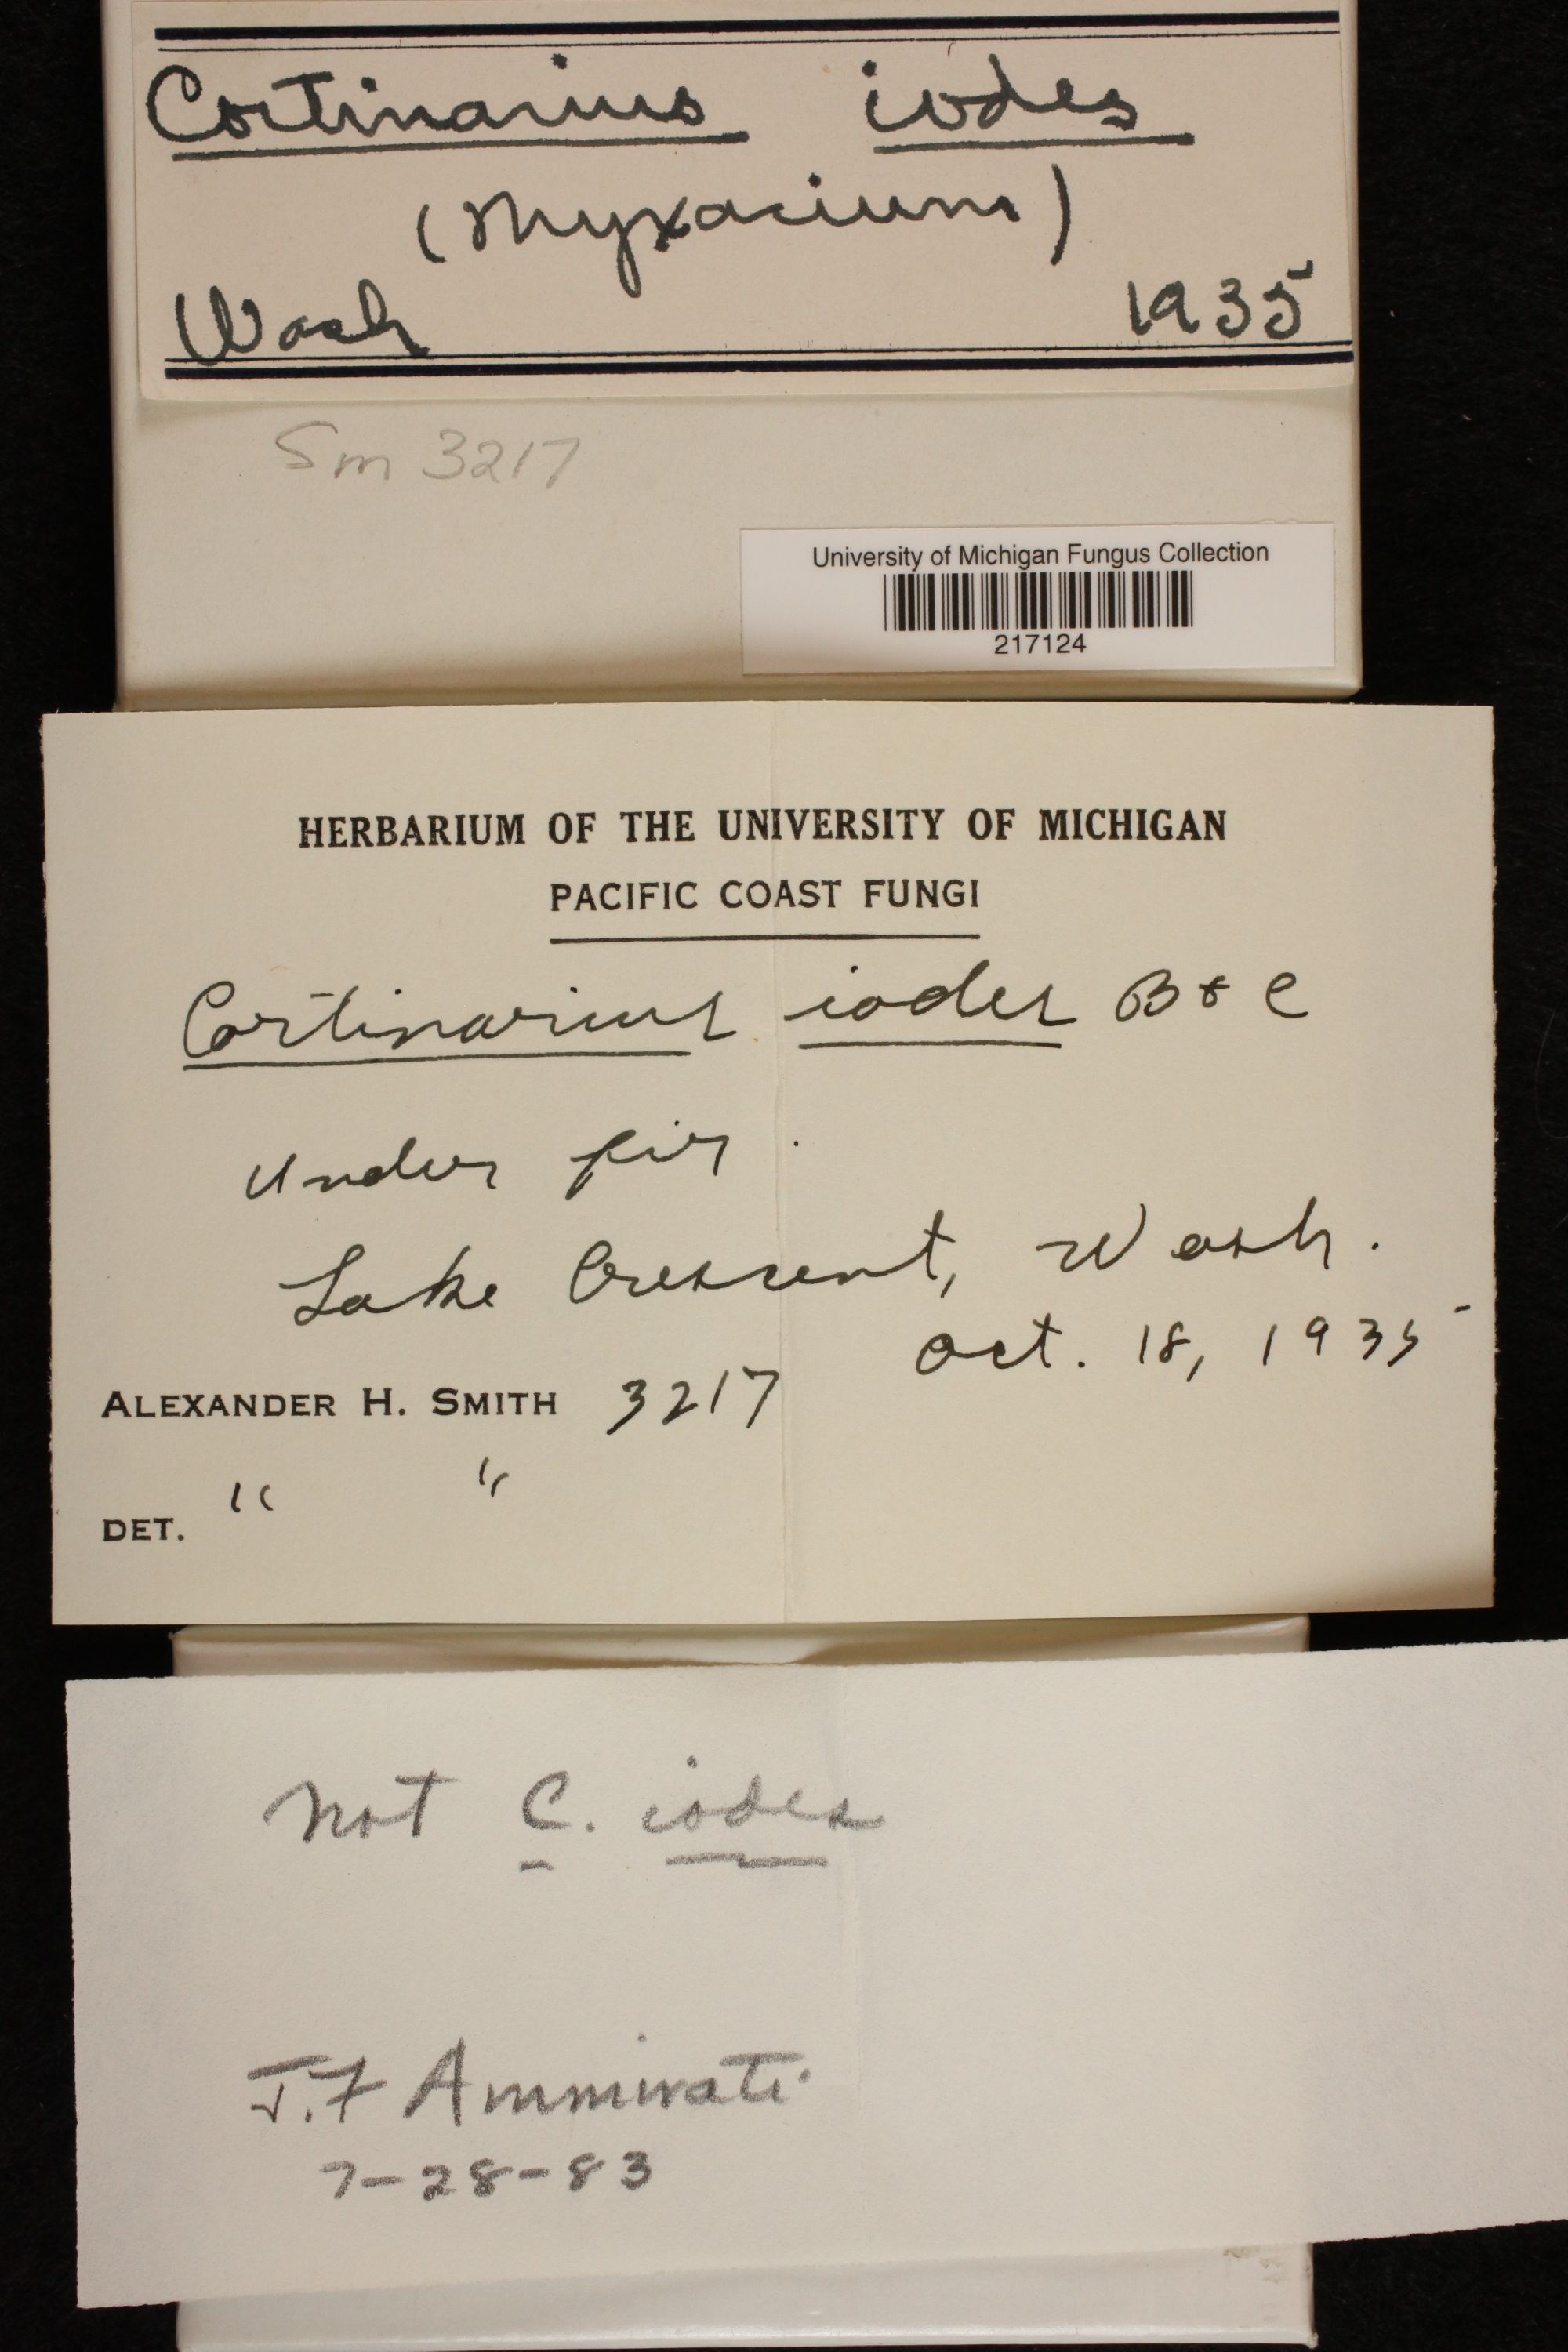 Cortinarius iodes
(Myxacium)
Wash 1935
Sm 3217
University of Michigan Fungus Collection
217124
HERBARIUM OF THE UNIVERSITY OF MICHIGAN
PACIFIC COAST FUNGI
Cortinarius iodes B & C
under fir.
Lake Crescent, Wash.
Oct. 18, 1935
ALEXANDER H. SMITH 3217
" "
DET.
Not C. iodes
J.F Ammirati
7-28-83